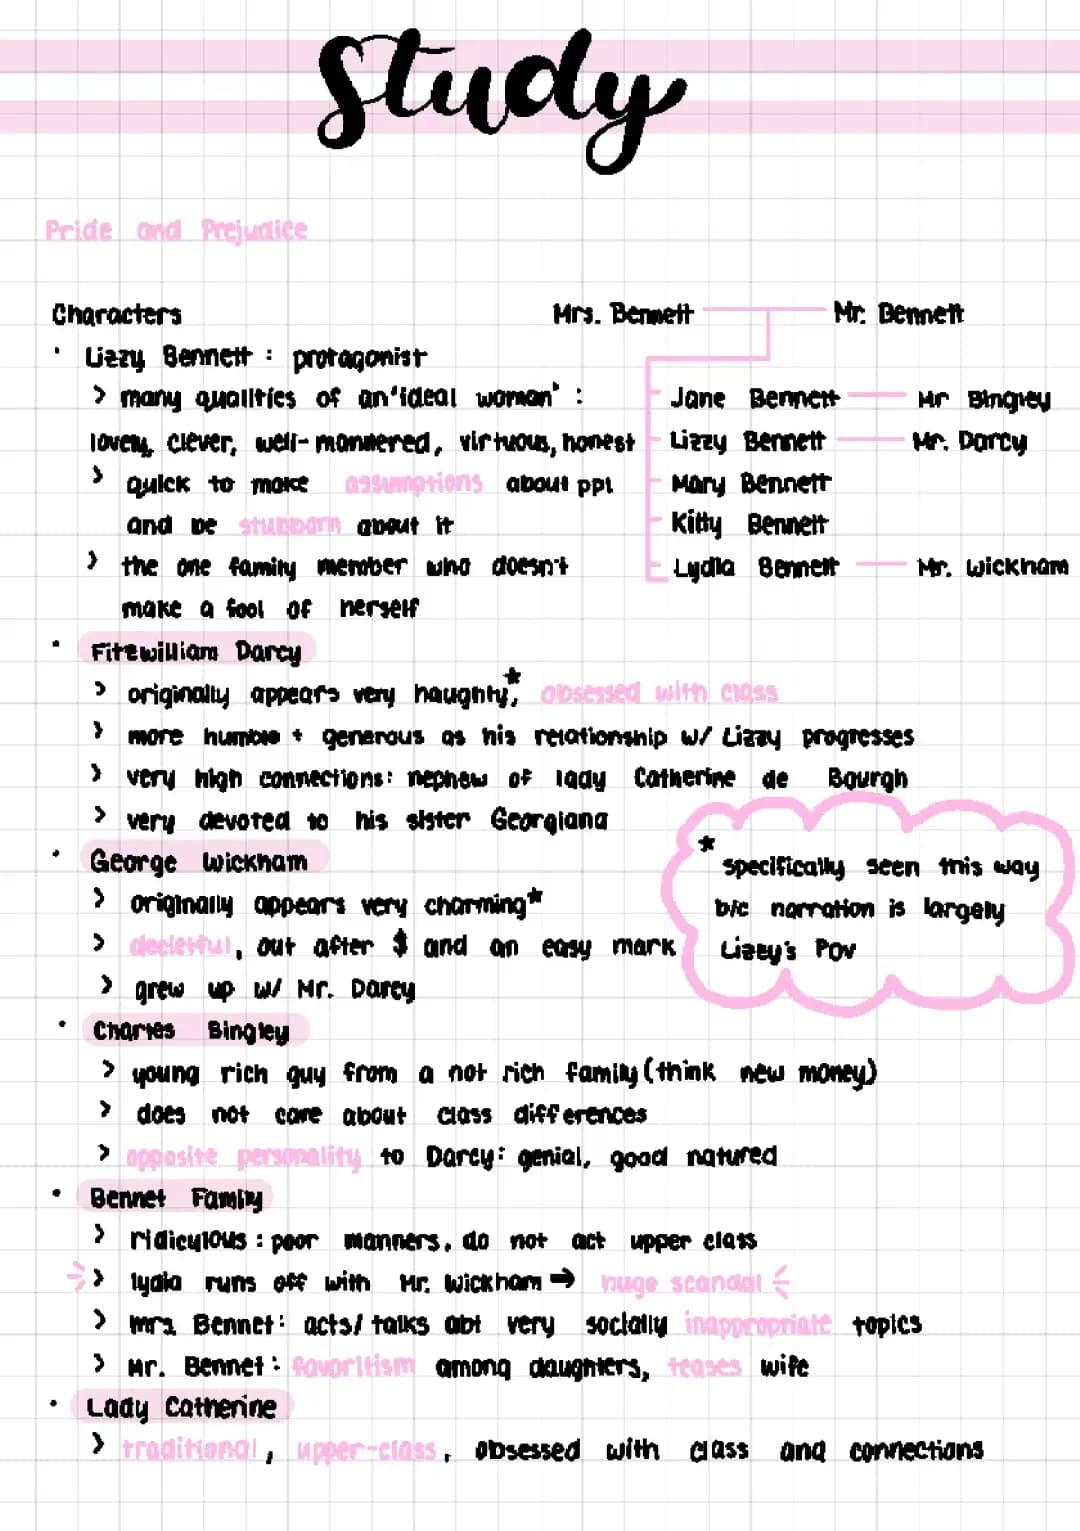 Study
Pride and Prejudice
Characters
Mrs. Bennett
Mr. Bennett
• Lizzy Bennett : protagonist
> many qualities of an 'ideal woman' :
lovely, clever, well-mannered, virtuous, honest
> quick to make assumptions about ppl
and be stubborn about it
> the one family member who doesn't
make a fool of herself
Jane Bennett Mr Bingley
Lizzy Bennett Mr. Darcy
Mary Bennett
Kitty Bennett
Lydia Bennett Mr. Wickham
• Fitzwilliam Darcy
> originally appears very haughty*, obsessed with class
> more humble + generous as his relationship w/ Lizzy progresses
> very high connections: nephew of lady Catherine de Bourgh
> very devoted to his sister Georgiana
• George Wickham
> originally appears very charming*
> decietful, out after $ and an easy mark
> grew up w/ Mr. Darcy
* specifically seen this way
b/c narration is largely
Lizzy's POV
• Charles Bingley
> young rich guy from a not rich family (think new money)
> does not care about class differences
> opposite personality to Darcy: genial, good natured
• Bennet Family
> ridiculous : poor manners, do not act upper class
> lydia runs off with Mr. Wickham → huge scandal
> mrs. Bennet: acts/talks abt very socially inappropriate topics
> Mr. Bennet: favoritism among daughters, teases wife
• Lady Catherine
> traditional, upper-class, obsessed with class and connections